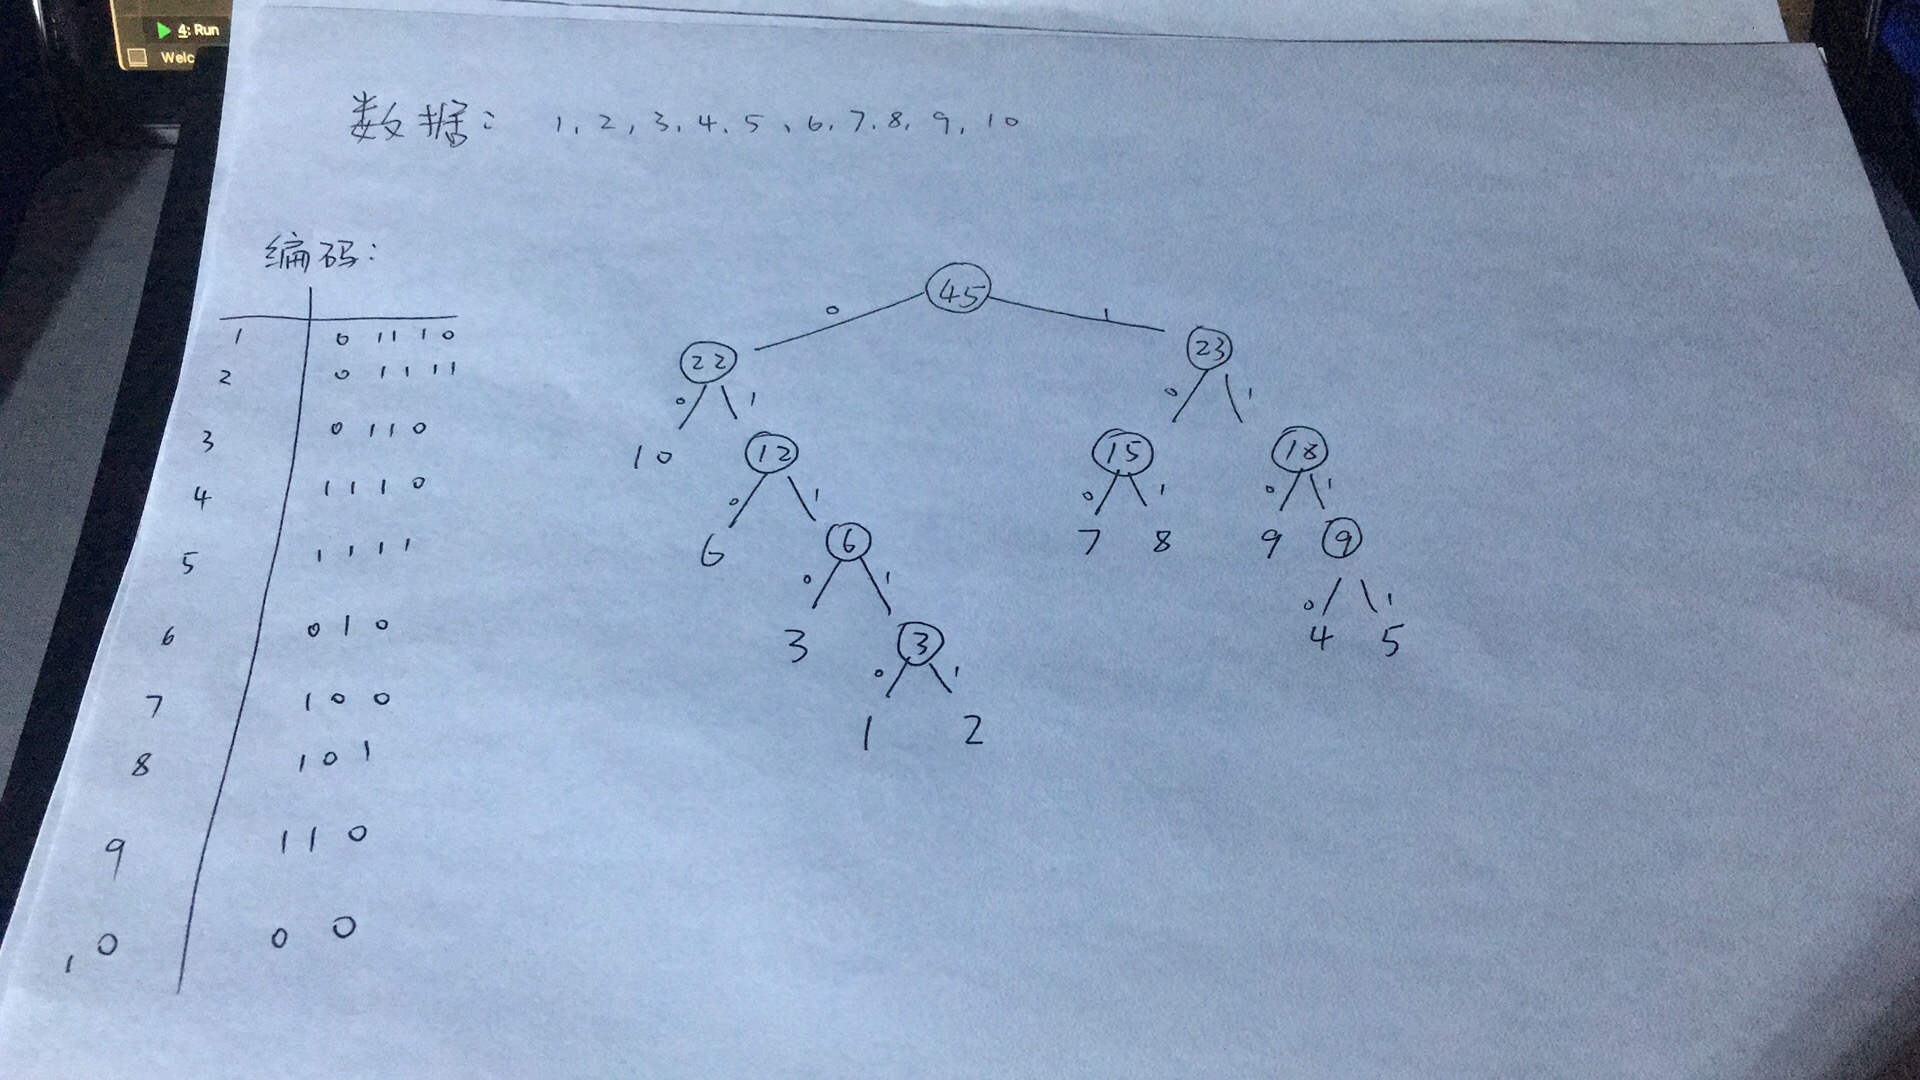 4: Run
Welc
数据: 1, 2, 3, 4, 5、6, 7, 8, 9, 10
编码:
1 01110
2 01111
3 0110
4 1110
5 1111
6 010
7 100
8 101
9 110
10 00
45
0 1
22 23
0 1 0 1
10 12 15 18
0 1 0 1 0 1
6 6 7 8 9 9
0 1 0 1
3 3 4 5
0 1
1 2